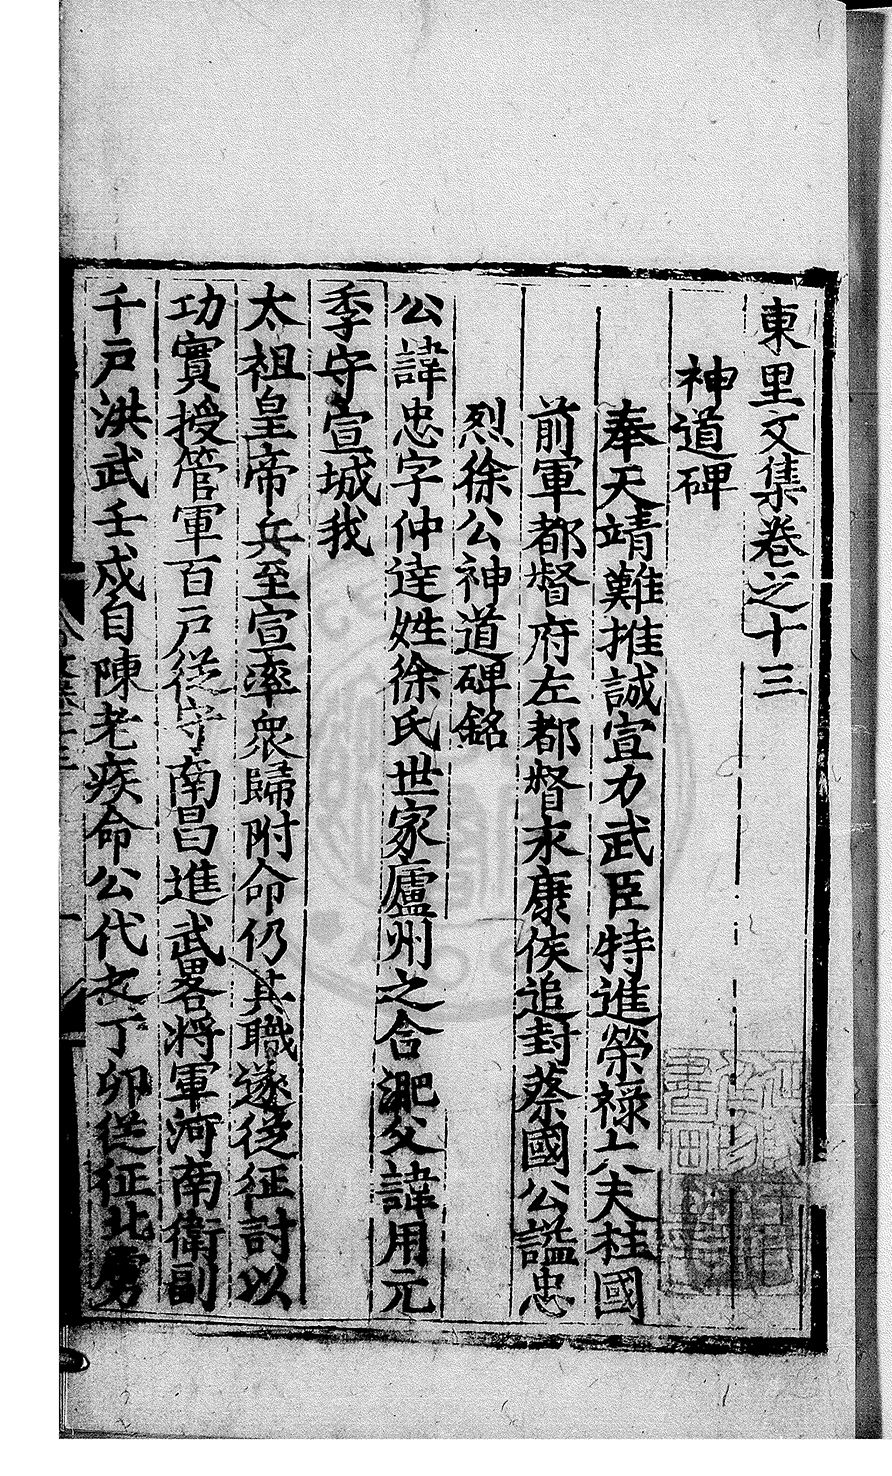 東里文集卷之十三
神道碑
奉天靖難推誠宣力武臣特進榮祿大夫柱國
前軍都督府左都督永康侯追封蔡國公謚忠
烈徐公神道碑銘
公諱忠字仲逹姓徐氏世家廬州之合淝父諱用元
季守宣城我
太祖皇帝兵至宣率衆歸附命仍其職遂從征討以
功實授管軍百戶從守南昌進武畧將軍河南衛副
千戶洪武壬戍自陳老疾命公代之丁卯從征北虜